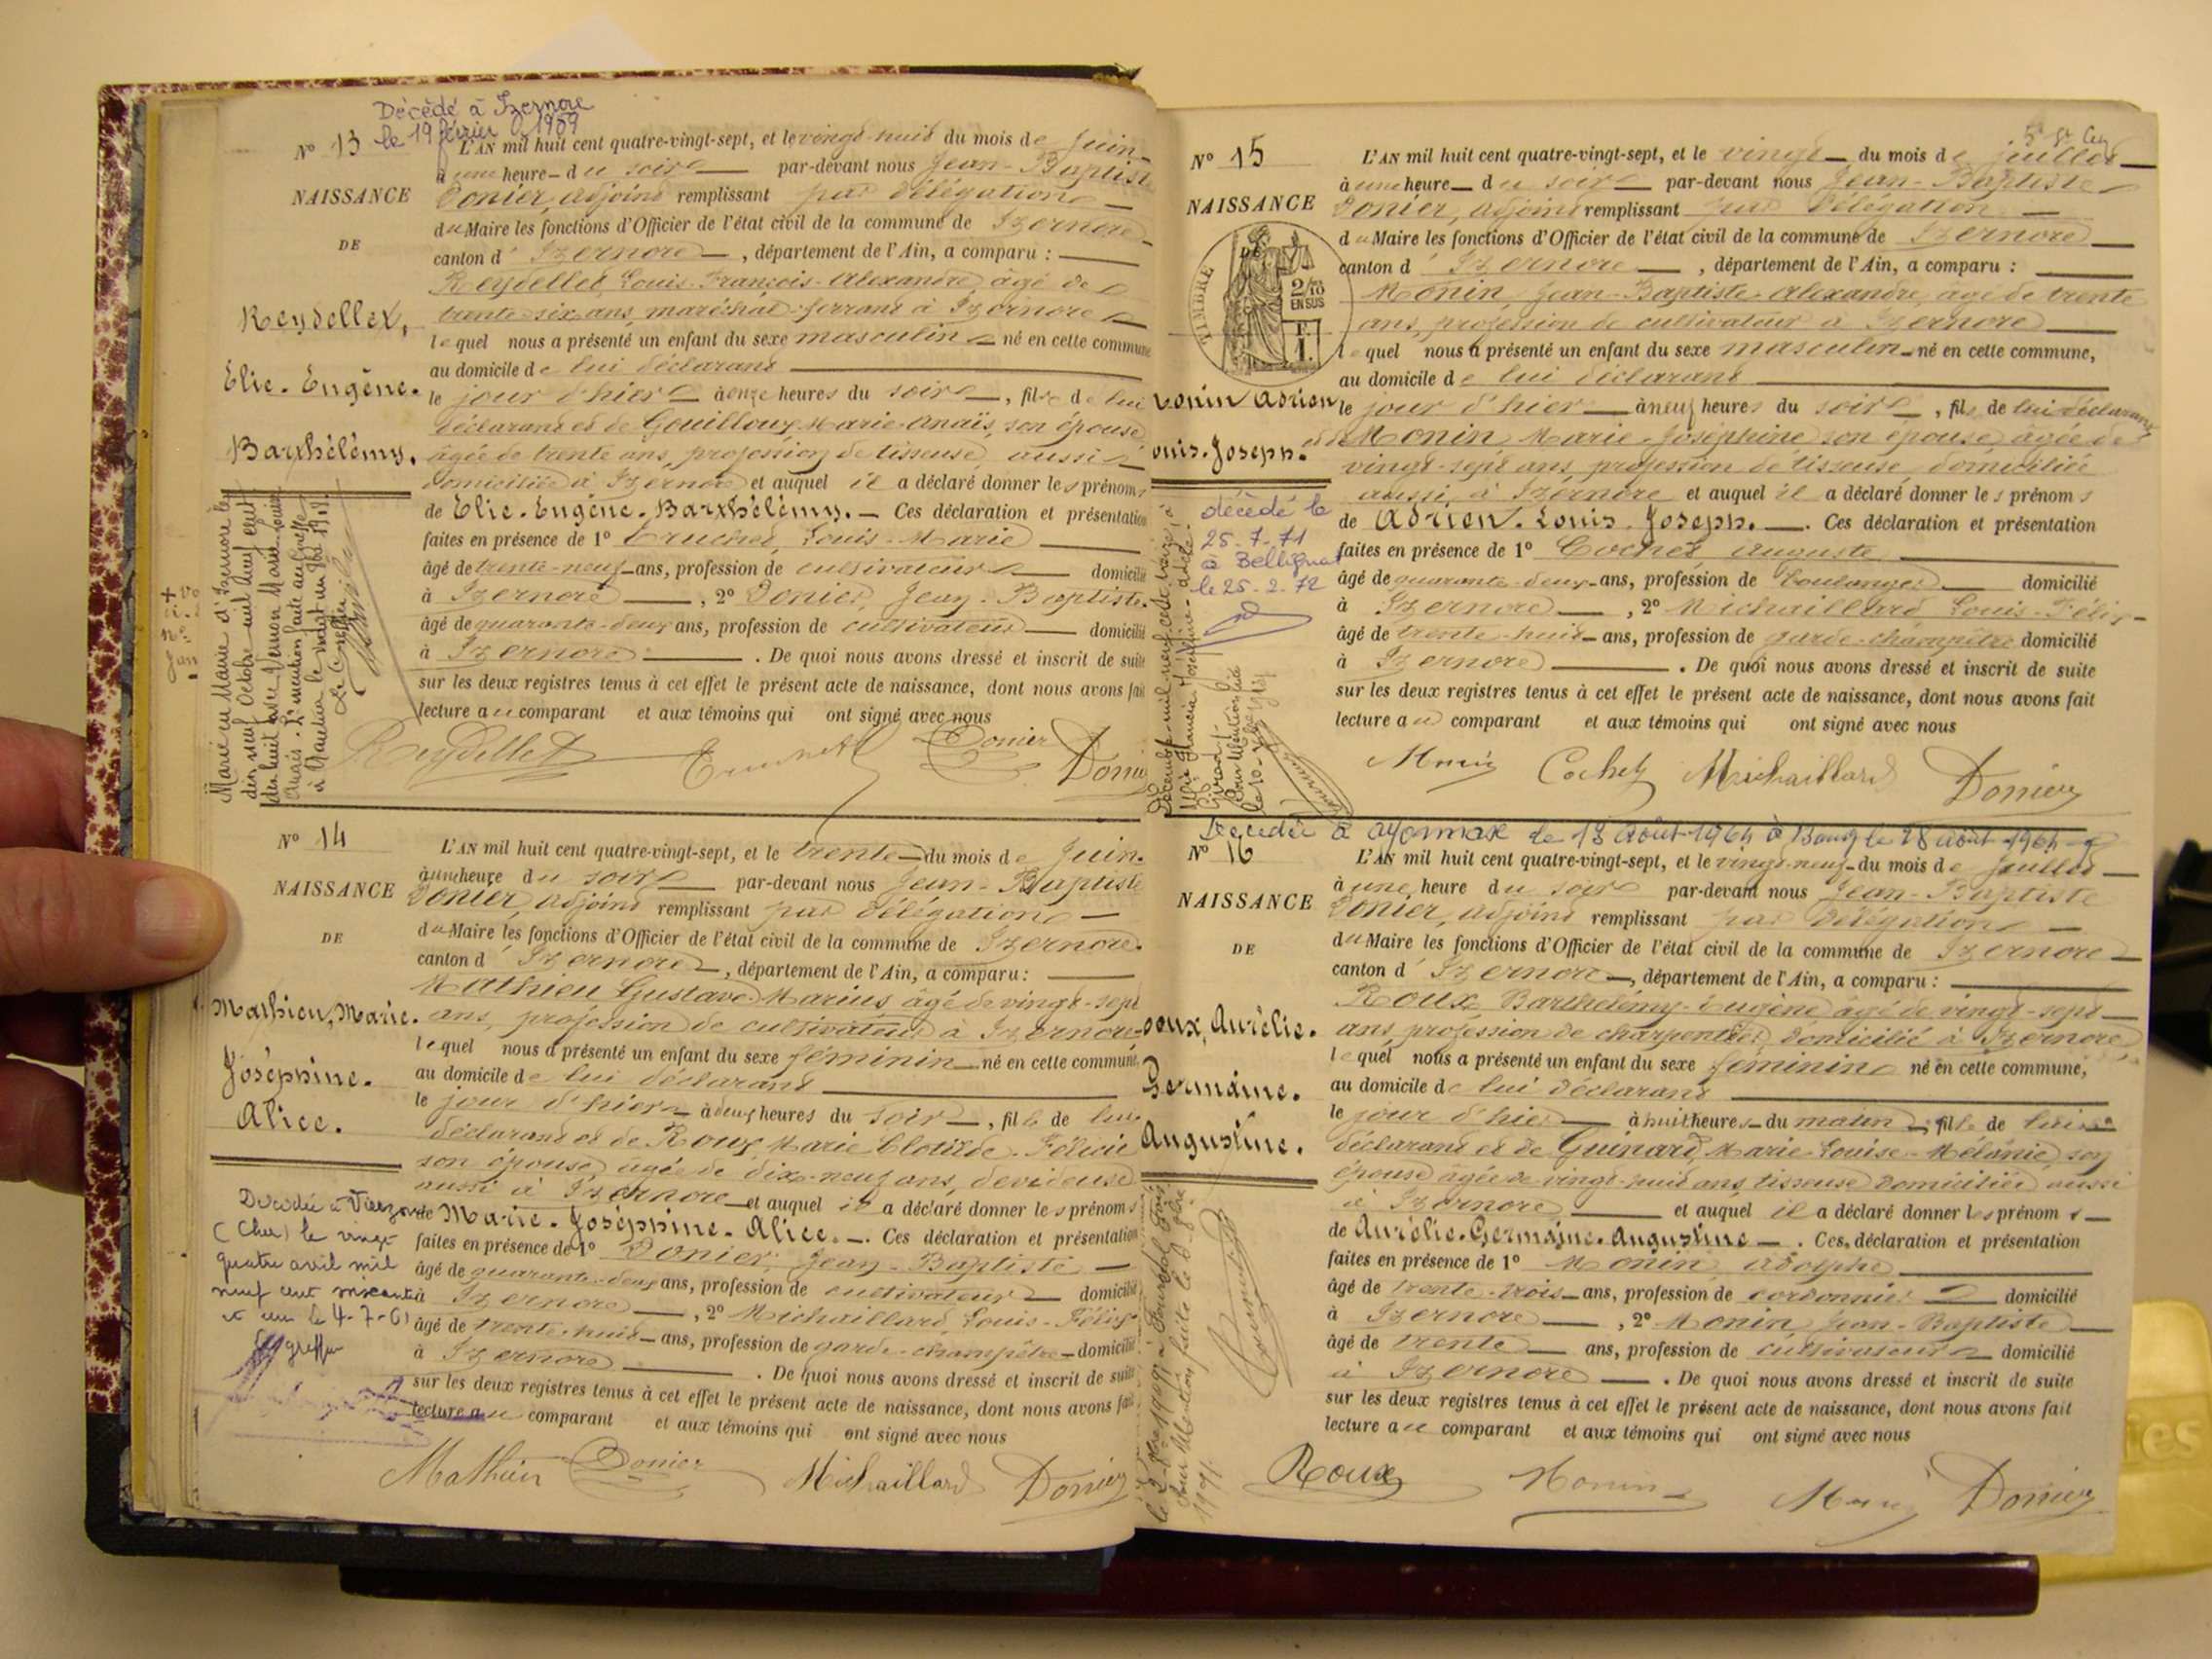 Décédé à Izernore
le 19 février 1959
N° 13
L'AN mil huit cent quatre-vingt-sept, et le vingt-huit du mois de Juin
à une heure du soir par-devant nous Jean-Baptiste
NAISSANCE
Donier, adjoint remplissant par délégation
du Maire les fonctions d'Officier de l'état civil de la commune de Izernore
DE
canton d'Izernore, département de l'Ain, a comparu :
Reydellet, Louis-François-Alexandre âgé de
Reydellet,
trente-six ans, maréchal-ferrant à Izernore
lequel nous a présenté un enfant du sexe masculin né en cette commune
au domicile de lui déclarant
Elie-Eugène-
le jour d'hier à onze heures du soir, fils de lui
déclarant et de Gouilloux, Marie-Anaïs, son épouse
Barthélémy.
âgée de trente ans, profession de tisseuse, aussi
domiciliée à Izernore et auquel il a déclaré donner les prénoms
de Elie-Eugène-Barthélémy. Ces déclaration et présentation
faites en présence de 1° Truchet, Louis-Marie
âgé de trente-neuf ans, profession de cultivateur domicilié
à Izernore, 2° Donier, Jean-Baptiste
âgé de quarante-deux ans, profession de cultivateur domicilié
à Izernore. De quoi nous avons dressé et inscrit de suite
sur les deux registres tenus à cet effet le présent acte de naissance, dont nous avons fait
lecture au comparant et aux témoins qui ont signé avec nous
Marié en Mairie d'Izernore le
dix neuf Octobre mil neuf cent
dix huit avec Vernon Marie-Louise
Anaïs. L'mention faite au greffe
à Nantua le vingt un
Reydellet Truchet Donier Donier
N° 14
L'AN mil huit cent quatre-vingt-sept, et le trente du mois de Juin
à une heure du soir par-devant nous Jean-Baptiste
NAISSANCE
Donier, adjoint remplissant par délégation
DE
du Maire les fonctions d'Officier de l'état civil de la commune de Izernore
canton d'Izernore, département de l'Ain, a comparu :
Mathieu Gustave-Marius âgé de vingt-sept
Mathieu, Marie-
ans, profession de cultivateur à Izernore
lequel nous a présenté un enfant du sexe féminin né en cette commune,
Joséphine-
au domicile de lui déclarant
Alice.
le jour d'hier à deux heures du soir, fille de lui
déclarant et de Roux, Marie Clotilde-Félicie
son épouse âgée de dix-neuf ans, dévideuse
aussi à Izernore et auquel il a déclaré donner les prénoms
de Marie-Joséphine-Alice. Ces déclaration et présentation
faites en présence de 1° Donier, Jean-Baptiste
âgé de quarante-deux ans, profession de cultivateur domicilié
à Izernore, 2° Michaillard, Louis-Félix
âgé de trente-huit ans, profession de garde-champêtre domicilié
à Izernore. De quoi nous avons dressé et inscrit de suite
sur les deux registres tenus à cet effet le présent acte de naissance, dont nous avons fait
lecture au comparant et aux témoins qui ont signé avec nous
Décédée à Vierzon
(Cher) le vingt
quatre avril mil
neuf cent soixante
et un le 4-7-61
Mathieu Donier Michaillard Donier
N° 15
L'AN mil huit cent quatre-vingt-sept, et le vingt du mois de juillet
à une heure du soir par-devant nous Jean-Baptiste
NAISSANCE
Donier, adjoint remplissant par délégation
du Maire les fonctions d'Officier de l'état civil de la commune de Izernore
DE
TIMBRE
2/10
EN SUS
canton d'Izernore, département de l'Ain, a comparu :
Monin, Jean-Baptiste-Alexandre, âgé de trente
ans, profession de cultivateur à Izernore
lequel nous a présenté un enfant du sexe masculin né en cette commune,
au domicile de lui déclarant
Monin Adrien
le jour d'hier à neuf heures du soir, fils de lui déclarant
Louis-Joseph.
et de Monin, Marie-Joséphine son épouse âgée de
vingt-sept ans, profession de tisseuse, domiciliée
aussi à Izernore et auquel il a déclaré donner les prénoms
de Adrien-Louis-Joseph. Ces déclaration et présentation
faites en présence de 1° Cochet Auguste
âgé de quarante-deux ans, profession de boulanger domicilié
à Izernore, 2° Michaillard Louis-Félix
âgé de trente-huit ans, profession de garde-champêtre domicilié
à Izernore. De quoi nous avons dressé et inscrit de suite
sur les deux registres tenus à cet effet le présent acte de naissance, dont nous avons fait
lecture au comparant et aux témoins qui ont signé avec nous
décédé le
25-7-71
à Bellignat
le 25-2-72
Monin Cochet Michaillard Donier
Décédée à Oyonnax le 13 Août 1964 à Bourg le 28 août 1964
N° 16
L'AN mil huit cent quatre-vingt-sept, et le vingt-neuf du mois de Juillet
à une heure du soir par-devant nous Jean-Baptiste
NAISSANCE
Donier, adjoint remplissant par délégation
DE
du Maire les fonctions d'Officier de l'état civil de la commune de Izernore
canton d'Izernore, département de l'Ain, a comparu :
Roux Barthélémy-Eugène âgé de vingt-sept
Roux, Aurélie-
ans, profession de charpentier domicilié à Izernore
lequel nous a présenté un enfant du sexe féminin né en cette commune,
Germaine-
au domicile de lui déclarant
Augustine.
le jour d'hier à huit heures du matin, fille de lui
déclarant et de Guinard, Marie-Louise-Mélanie, son
épouse âgée de vingt-huit ans, tisseuse domiciliée aussi
à Izernore et auquel il a déclaré donner les prénoms
de Aurélie-Germaine-Augustine. Ces déclaration et présentation
faites en présence de 1° Monin, Adolphe
âgé de trente-trois ans, profession de cordonnier domicilié
à Izernore, 2° Monin, Jean-Baptiste
âgé de trente ans, profession de cultivateur domicilié
à Izernore. De quoi nous avons dressé et inscrit de suite
sur les deux registres tenus à cet effet le présent acte de naissance, dont nous avons fait
lecture au comparant et aux témoins qui ont signé avec nous
Roux Monin Monin Donier